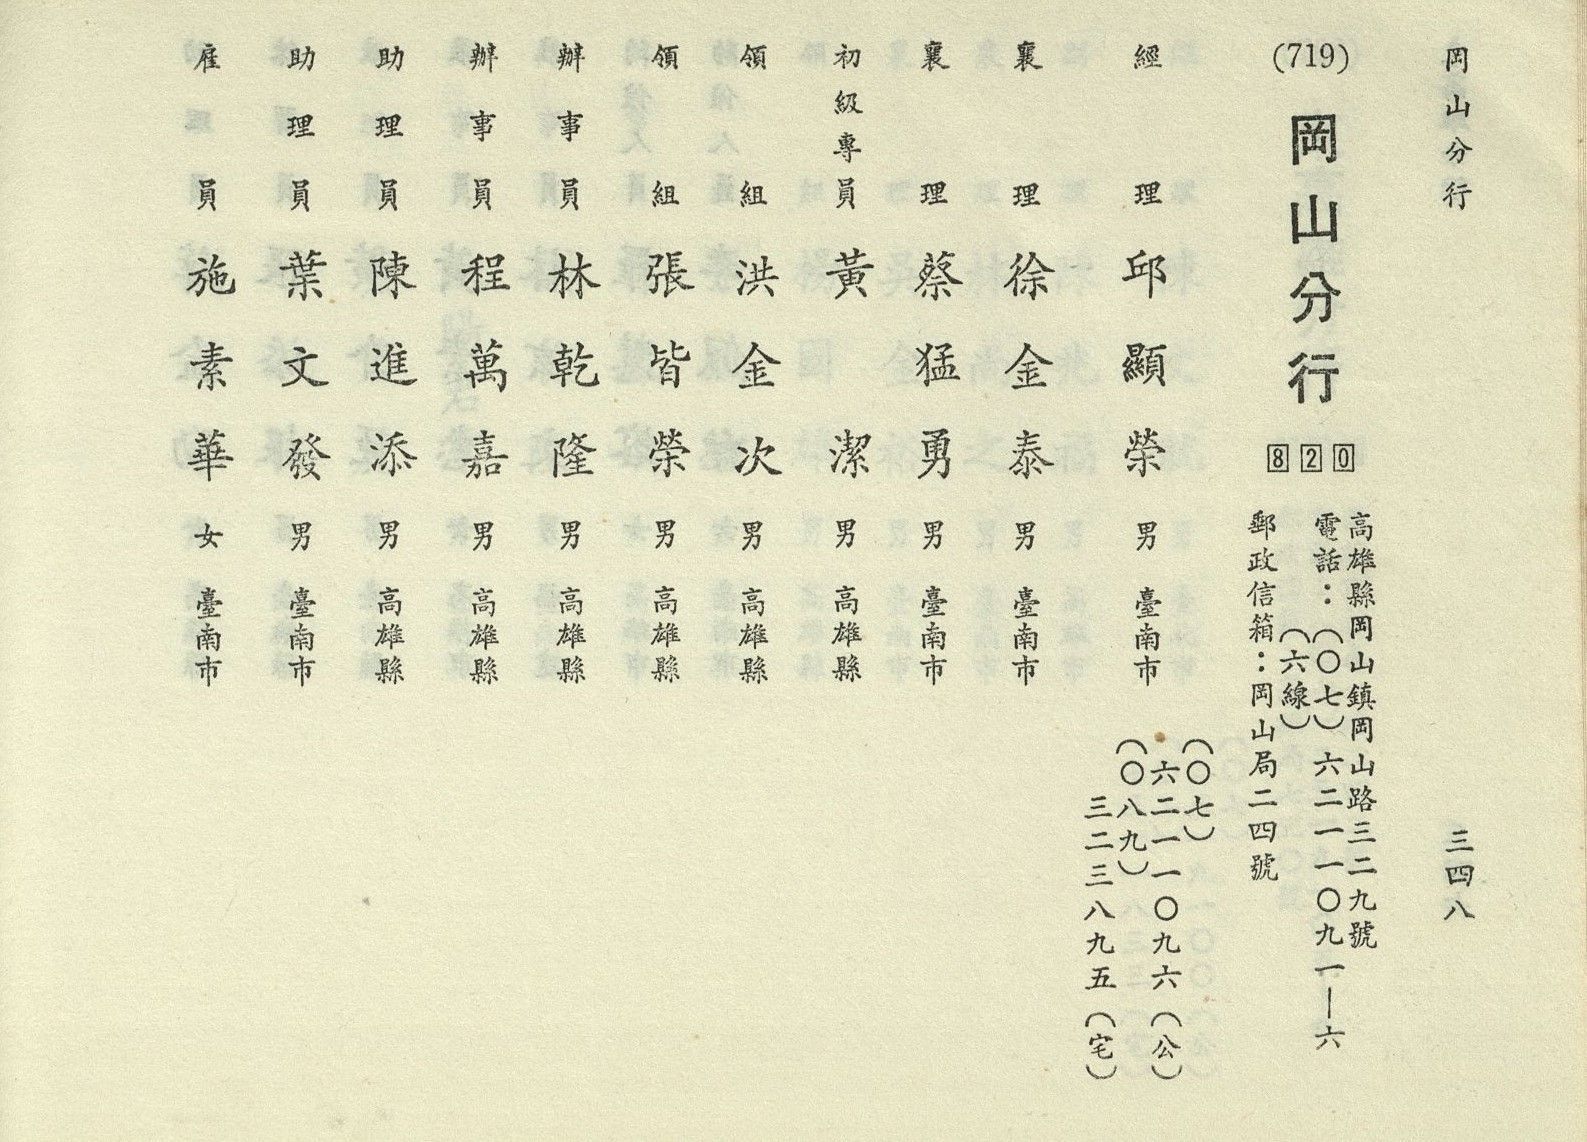 岡山分行 三四八
(719) 岡山分行 820
高雄縣岡山鎮岡山路三二九號
電話：（〇七）六二一一〇九一—六
（六線）
郵政信箱：岡山局二四號
經理 邱顯榮 男 臺南市
（〇七）
六二一一〇九六（公）
（〇八九）
三二三八九五（宅）
襄理 徐金泰 男 臺南市
襄理 蔡猛勇 男 臺南市
初級專員 黃潔 男 高雄縣
領組 洪金次 男 高雄縣
領組 張皆榮 男 高雄縣
辦事員 林乾隆 男 高雄縣
辦事員 程萬嘉 男 高雄縣
助理員 陳進添 男 高雄縣
助理員 葉文發 男 臺南市
雇員 施素華 女 臺南市